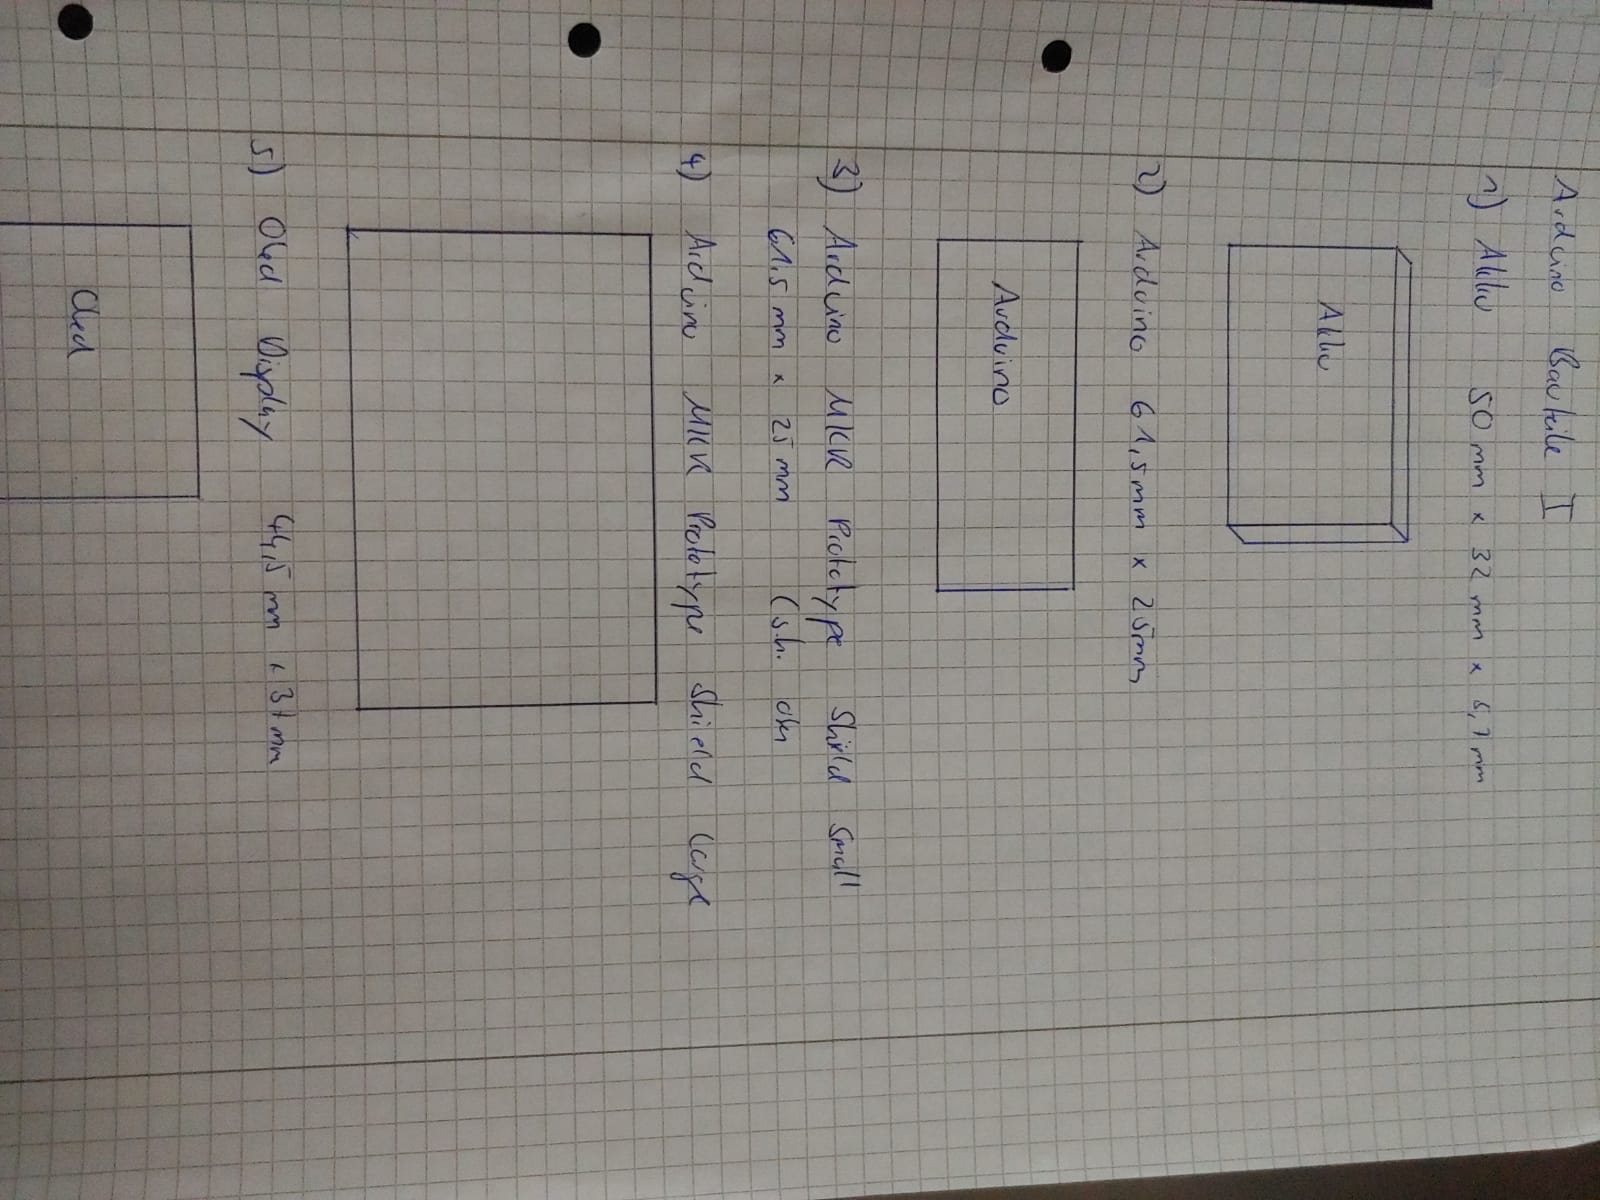 Arduino Bauteile I
1) Akku 50 mm x 32 mm x 6,7 mm
Akku
2) Arduino 61,5mm x 25mm
Arduino
3) Arduino MKR Prototype Shield Small
61,5 mm x 25 mm (s.h. oben
4) Arduino MKR Prototype Shield Large
5) Oled Display 44,5 mm x 37mm
Oled